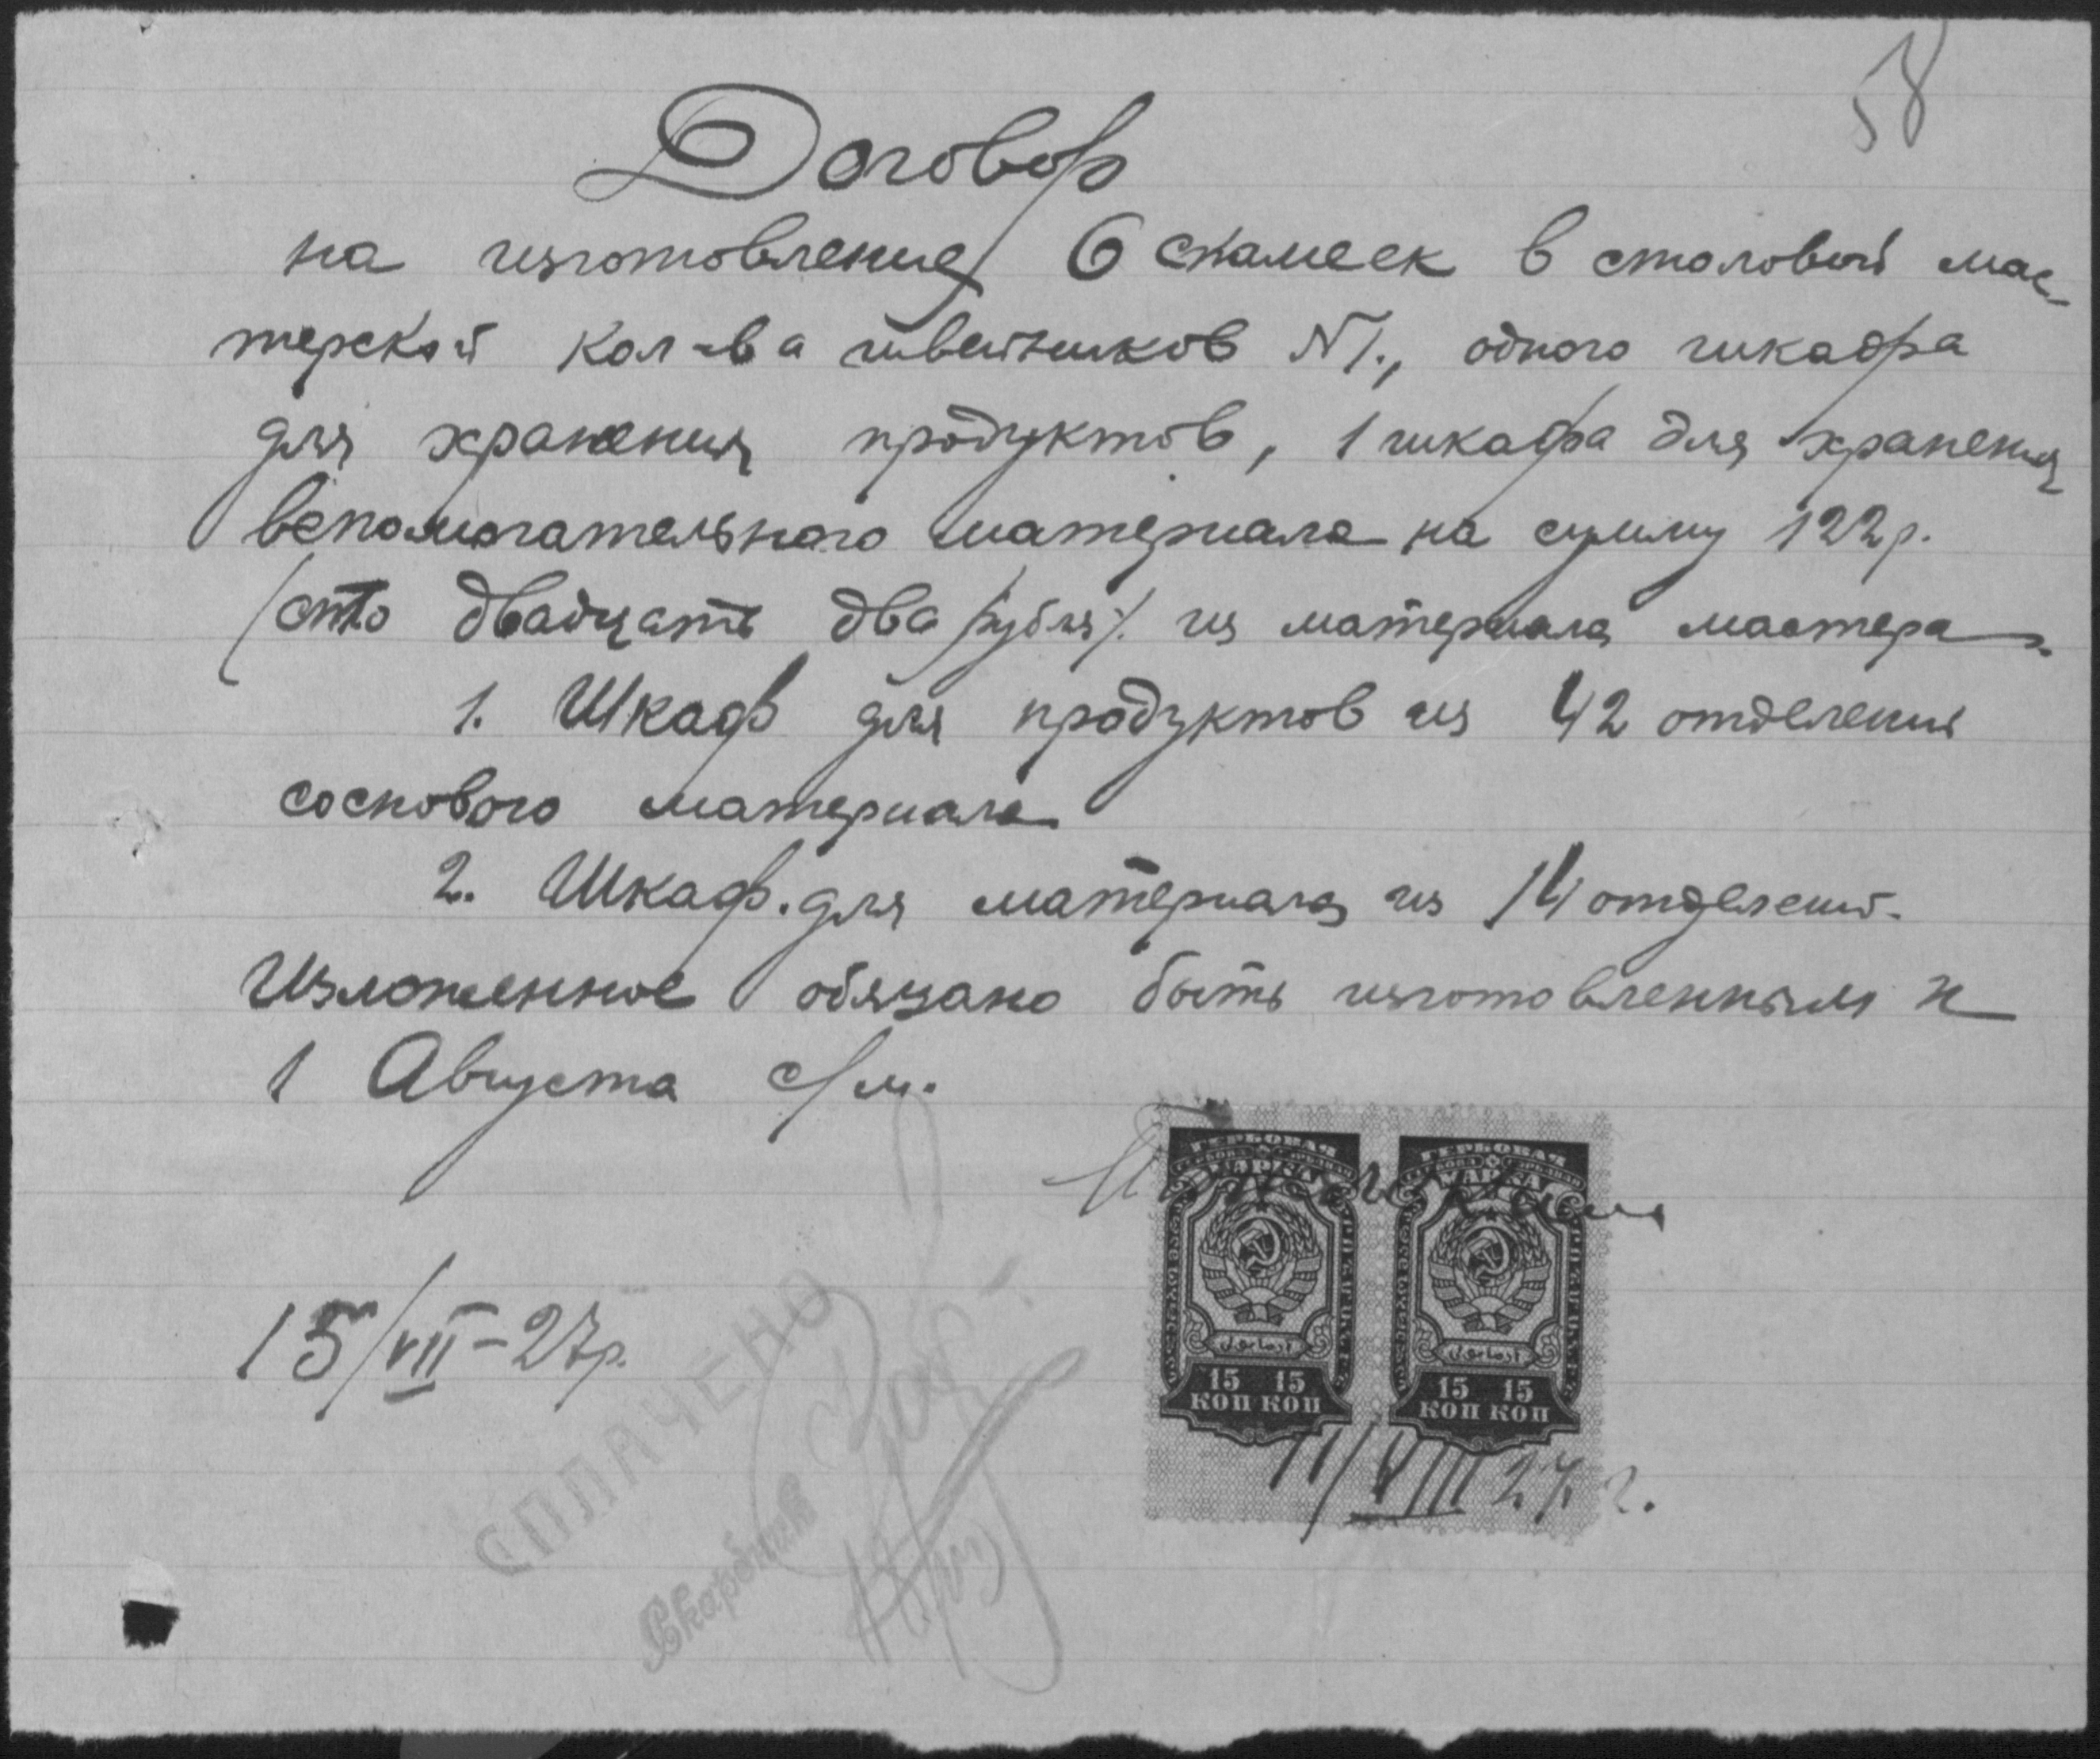 58
Договор
на изготовление 6 скамеек в столовый мас-
терской Кол-ва швейников №1., одного шкафа
для хранения продуктов, 1 шкафа для хранения
вспомогательного материала на сумму 122 р.
(сто двадцать два рубля). из материала мастера.
1. Шкаф для продуктов из 42 отделения
соснового материала
2. Шкаф. для материала из 14 отделений.
Изложенное обязано быть изготовленным к
1 Августа с/м.
ГЕРБОВАЯ МАРКА ГЕРБОВАЯ МАРКА
15 15 КОП КОП 15 15 КОП КОП
15/VII-27р.
11/VIII 27 г.
СПЛАЧЕНО
Скарбник